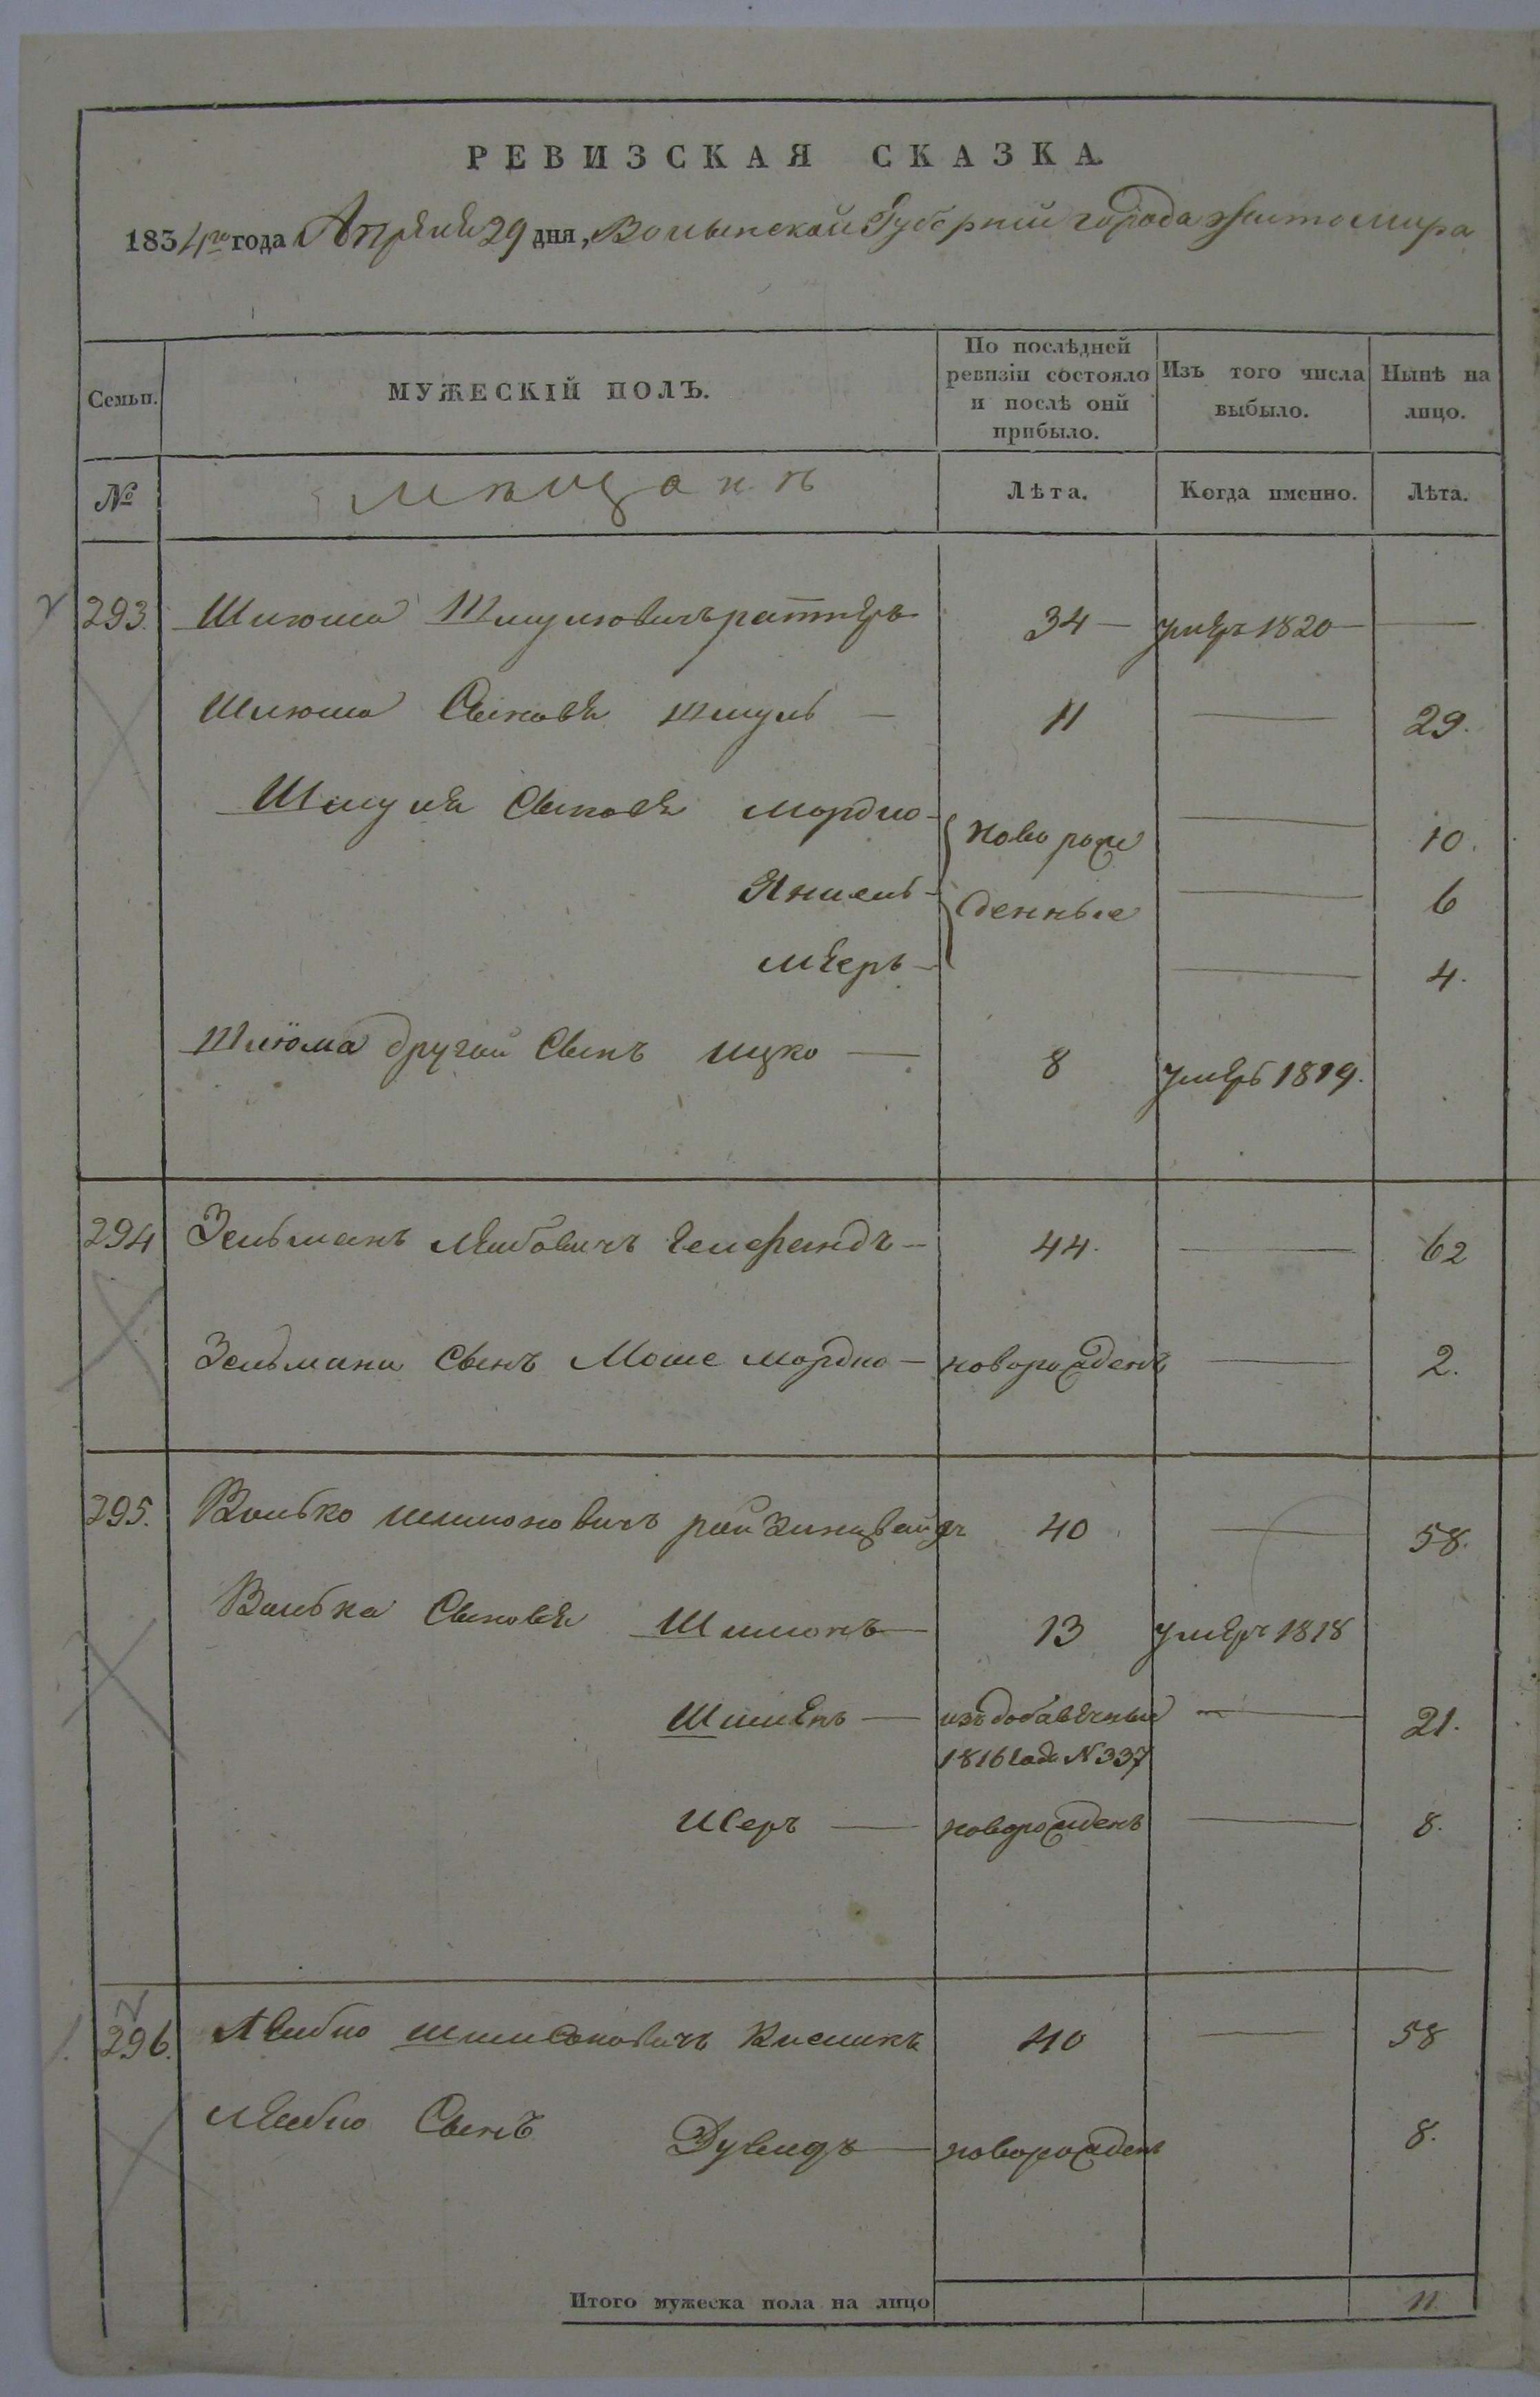 РЕВИЗСКАЯ СКАЗКА.
1834го года Апреля 29 дня, Волынской Губерніи города Житомира
Семьи. МУЖЕСКІЙ ПОЛЪ. По послѣдней ревизіи состояло и послѣ оній прибыло. Изъ того числа выбыло. Нынѣ на лицо.
№ мѣщанѣ Лѣта. Когда именно. Лѣта.
293. Шлюма Шмулювичъ ратнеръ 34 — умеръ 1820 —
Шлюма Сыновя Шмуль — 11 — 29.
Шмуля Сыновя мордко — новорож — 10.
Янкель — денные — 6
мееръ — — 4.
Шлюма другой Сынъ ицко — 8 умеръ 1819.
294 Зельманъ Леибовичъ гелфандъ — 44. — 62
Зельмана Сынъ Моше мордко — новорожденъ — 2.
295. Волько шимоновичъ 40 — 58.
Волька Сыновя Шимонъ — 13 умеръ 1818
— изъ добавочныхъ — 21.
1816 года N 337
Исеръ — новорожденъ — 8.
296. Леибко 40 — 58
Леибко Сынъ Дувидъ — новорожденъ 8.
Итого мужеска пола на лицо 11.